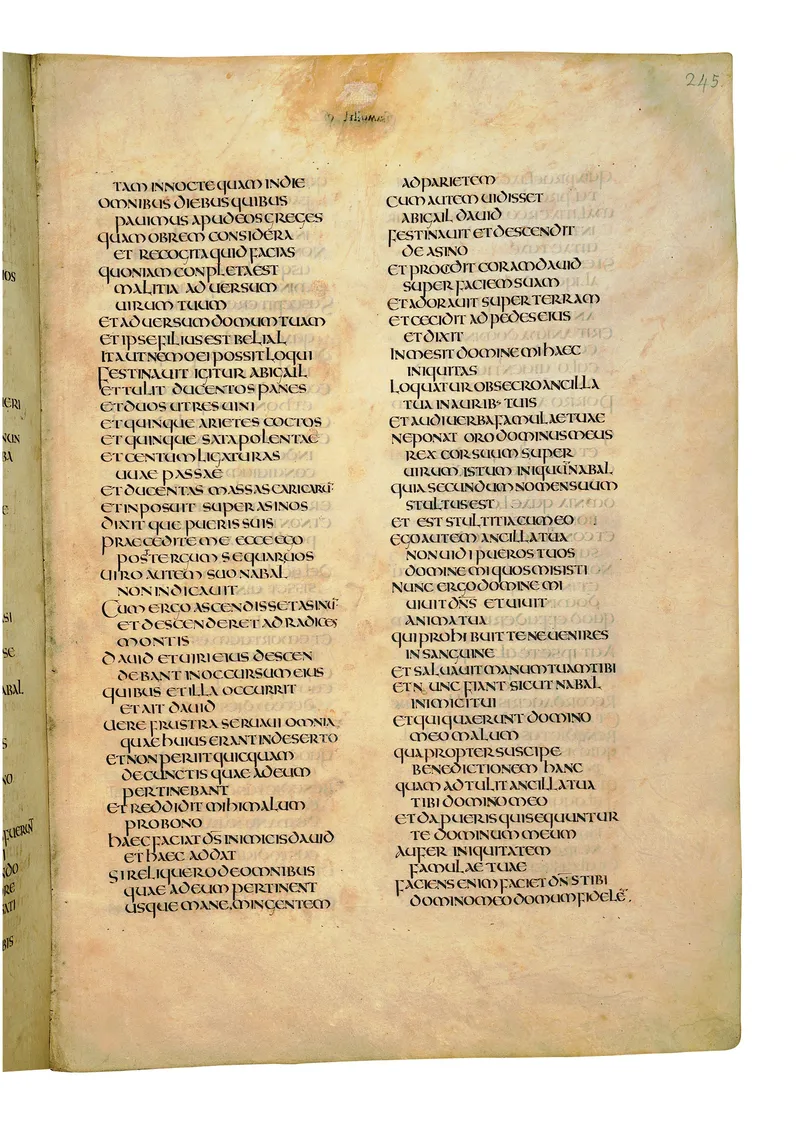 245.
TAM IN NOCTE QUAM IN DIE
OMNIBUS DIEBUS QUIBUS
PAUIMUS APUD EOS GREGES
QUAM OBREM CONSIDERA
ET RECOGITA QUID FACIAS
QUONIAM CONPLETA EST
MALITIA ADUERSUM
UIRUM TUUM
ET ADUERSUM DOMUM TUAM
ET IPSE FILIUS EST BELIAL
ITA UT NEMO EI POSSIT LOQUI
FESTINAUIT IGITUR ABIGAIL
ET TULIT DUCENTOS PANES
ET DUOS UTRES UINI
ET QUINQUE ARIETES COCTOS
ET QUINQUE SATA POLENTAE
ET CENTUM LIGATURAS
UUAE PASSAE
ET DUCENTAS MASSAS CARICARŪ
ET INPOSUIT SUPER ASINOS
DIXITQUE PUERIS SUIS
PRAECEDITE ME ECCE EGO
POST TERGUM SEQUAR UOS
UIRO AUTEM SUO NABAL
NON INDICAUIT
CUM ERGO ASCENDISSET ASINŪ
ET DESCENDERET AD RADICES
MONTIS
DAUID ET UIRI EIUS DESCEN
DEBANT IN OCCURSUM EIUS
QUIBUS ET ILLA OCCURRIT
ET AIT DAUID
UERE FRUSTRA SERUAUI OMNIA
QUAE HUIUS ERANT IN DESERTO
ET NON PERIIT QUICQUAM
DE CUNCTIS QUAE AD EUM
PERTINEBANT
ET REDDIDIT MIHI MALUM
PRO BONO
HAEC FACIAT D̄S INIMICIS DAUID
ET HAEC ADDAT
SI RELIQUERO DE OMNIBUS
QUAE AD EUM PERTINENT
USQUE MANE MINGENTEM
AD PARIETEM
CUM AUTEM UIDISSET
ABIGAIL DAUID
FESTINAUIT ET DESCENDIT
DE ASINO
ET PROCIDIT CORAM DAUID
SUPER FACIEM SUAM
ET ADORAUIT SUPER TERRAM
ET CECIDIT AD PEDES EIUS
ET DIXIT
IN ME SIT DOMINE MI HAEC
INIQUITAS
LOQUATUR OBSECRO ANCILLA
TUA IN AURIB· TUIS
ET AUDI UERBA FAMULAE TUAE
NE PONAT ORO DOMINUS MEUS
REX COR SUUM SUPER
UIRUM ISTUM INIQUŪ NABAL
QUIA SECUNDUM NOMEN SUUM
STULTUS EST
ET EST STULTITIA CUM EO
EGO AUTEM ANCILLA TUA
NON UIDI PUEROS TUOS
DOMINE MI QUOS MISISTI
NUNC ERGO DOMINE MI
UIUIT D̄N̄S ET UIUIT
ANIMA TUA
QUI PROHIBUIT TE NE UENIRES
IN SANGUINE
ET SALUAUIT MANUM TUAM TIBI
ET NUNC FIANT SICUT NABAL
INIMICI TUI
ET QUI QUAERUNT DOMINO
MEO MALUM
QUAPROPTER SUSCIPE
BENEDICTIONEM HANC
QUAM ADTULIT ANCILLA TUA
TIBI DOMINO MEO
ET DA PUERIS QUI SEQUUNTUR
TE DOMINUM MEUM
AUFER INIQUITATEM
FAMULAE TUAE
FACIENS ENIM FACIET D̄N̄S TIBI
DOMINO MEO DOMUM FIDELĒ.